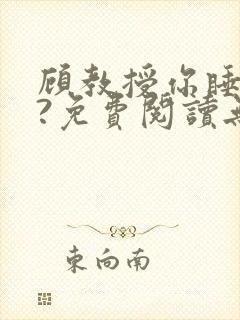 顾教授你睡
?免費閱讀
東向南